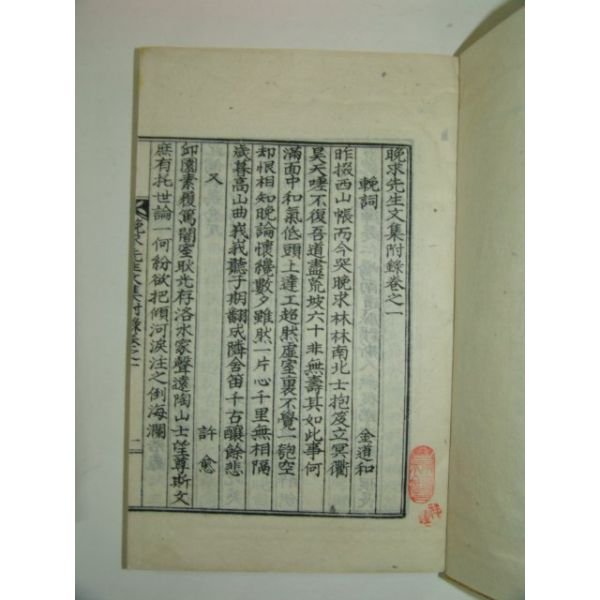 晚求先生文集附錄卷之一
輓詞 金道和
昨掇西山帳而今哭晚求林林南北士抱笈立冥衢
昊天嘊不復吾道盡荒坡六十非無壽其如此事何
滿面中和氣低頭上達工超然虛室裏不覺一瓢空
却恨相知晚論懷纔數夕雖然一片心千里無相隔
歲暮高山曲峩峩聽子期翻成隣舍笛千古釀餘悲
又 許愈
邱園素履篤闇室耿光存洛水家聲遠陶山士望尊斯文
庶有托世論一何紛欲把傾河淚注之倒海瀾
晚求先生文集附錄卷之一 一